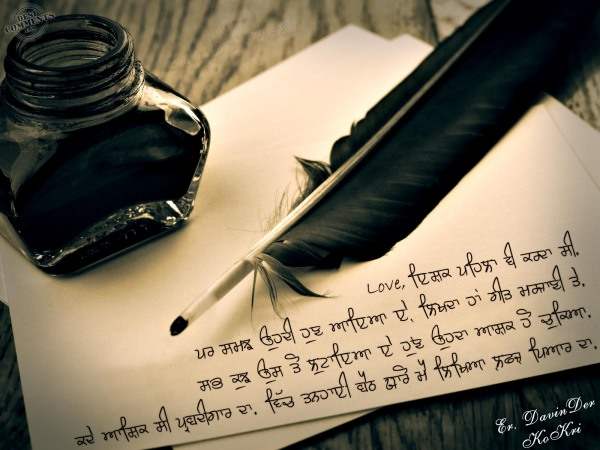 DESI COMMENTS
Love, ਇਸ਼ਕ ਪਹਿਲਾ ਵੀ ਕਰਦਾ ਸੀ.
ਪਰ ਸਮਝ ਉਹਦੀ ਹੁਣ ਆਇਆ ਏ, ਲਿਖਦਾ ਹਾਂ ਗੀਤ ਮਸਤਾਈ ਤੇ.
ਸਭ ਕੁਝ ਉਸ ਤੋ ਲੁਟਾਇਆ ਏ ਹੁਣ ਉਹਦਾ ਆਸ਼ਕ ਹੋ ਚੁਕਿਆ.
ਕਦੇ ਆਸ਼ਿਕ ਸੀ ਪ੍ਰਵਦੀਗਾਰ ਦਾ. ਵਿੱਚ ਤਨਹਾਈ ਬੈਠ ਯਾਰੋ ਮੈਂ ਲਿਖਿਆ ਲਫਜ਼ ਪਿਆਰ ਦਾ.
Er. DavinDer
KoKri